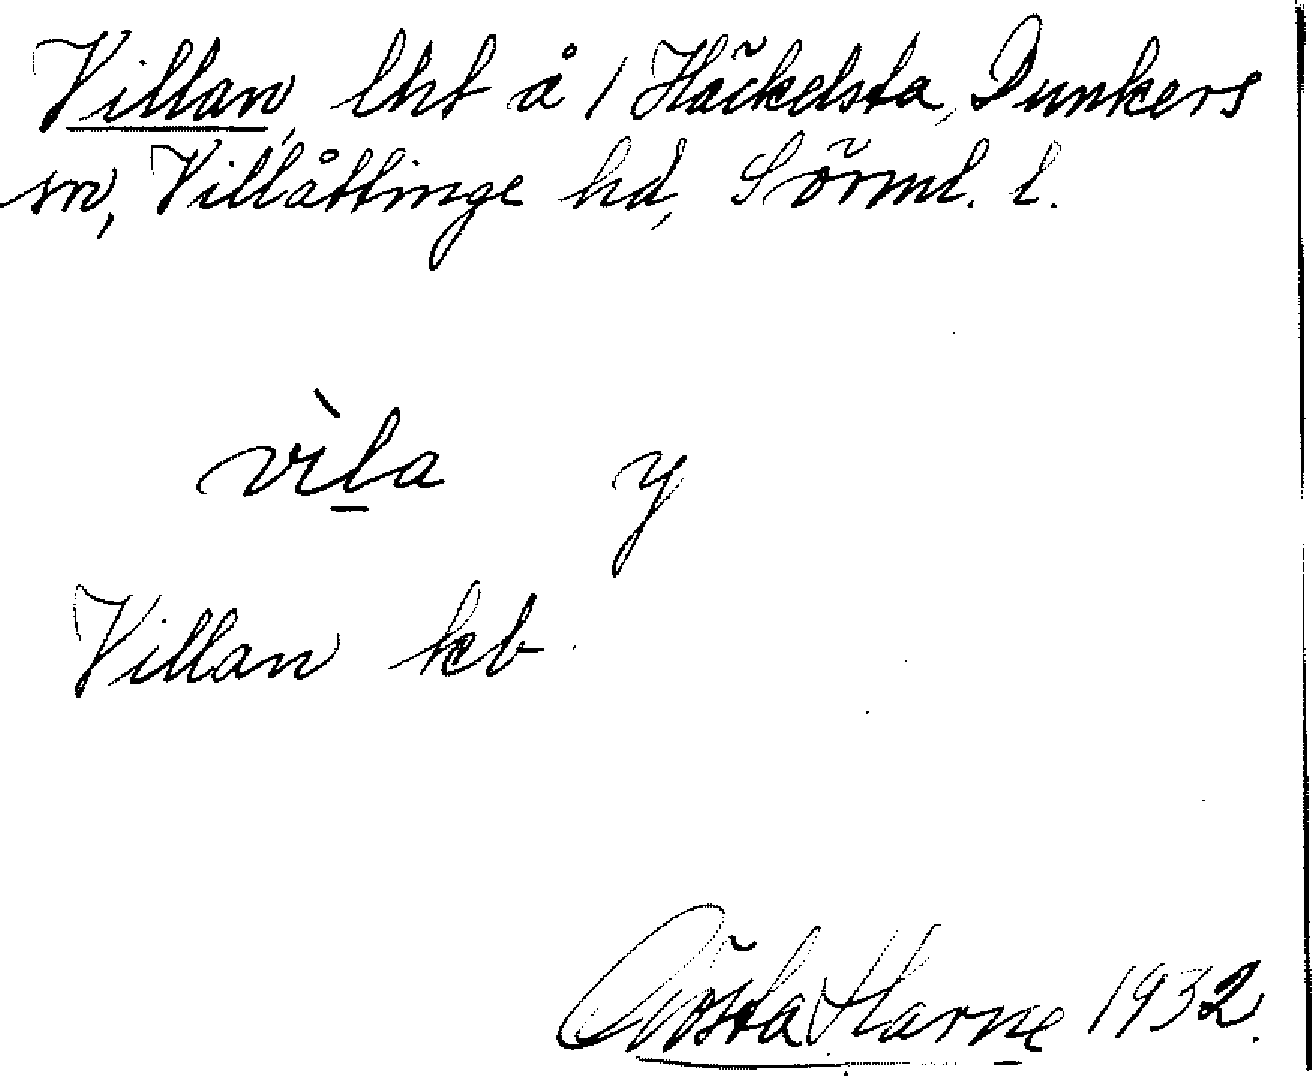 Villan, lht å 1 Häckelsta, Dunkers
sn, Villåttinge hd, Sörml. l.
vìla y
Villan kb
Gösta Harne 1932.